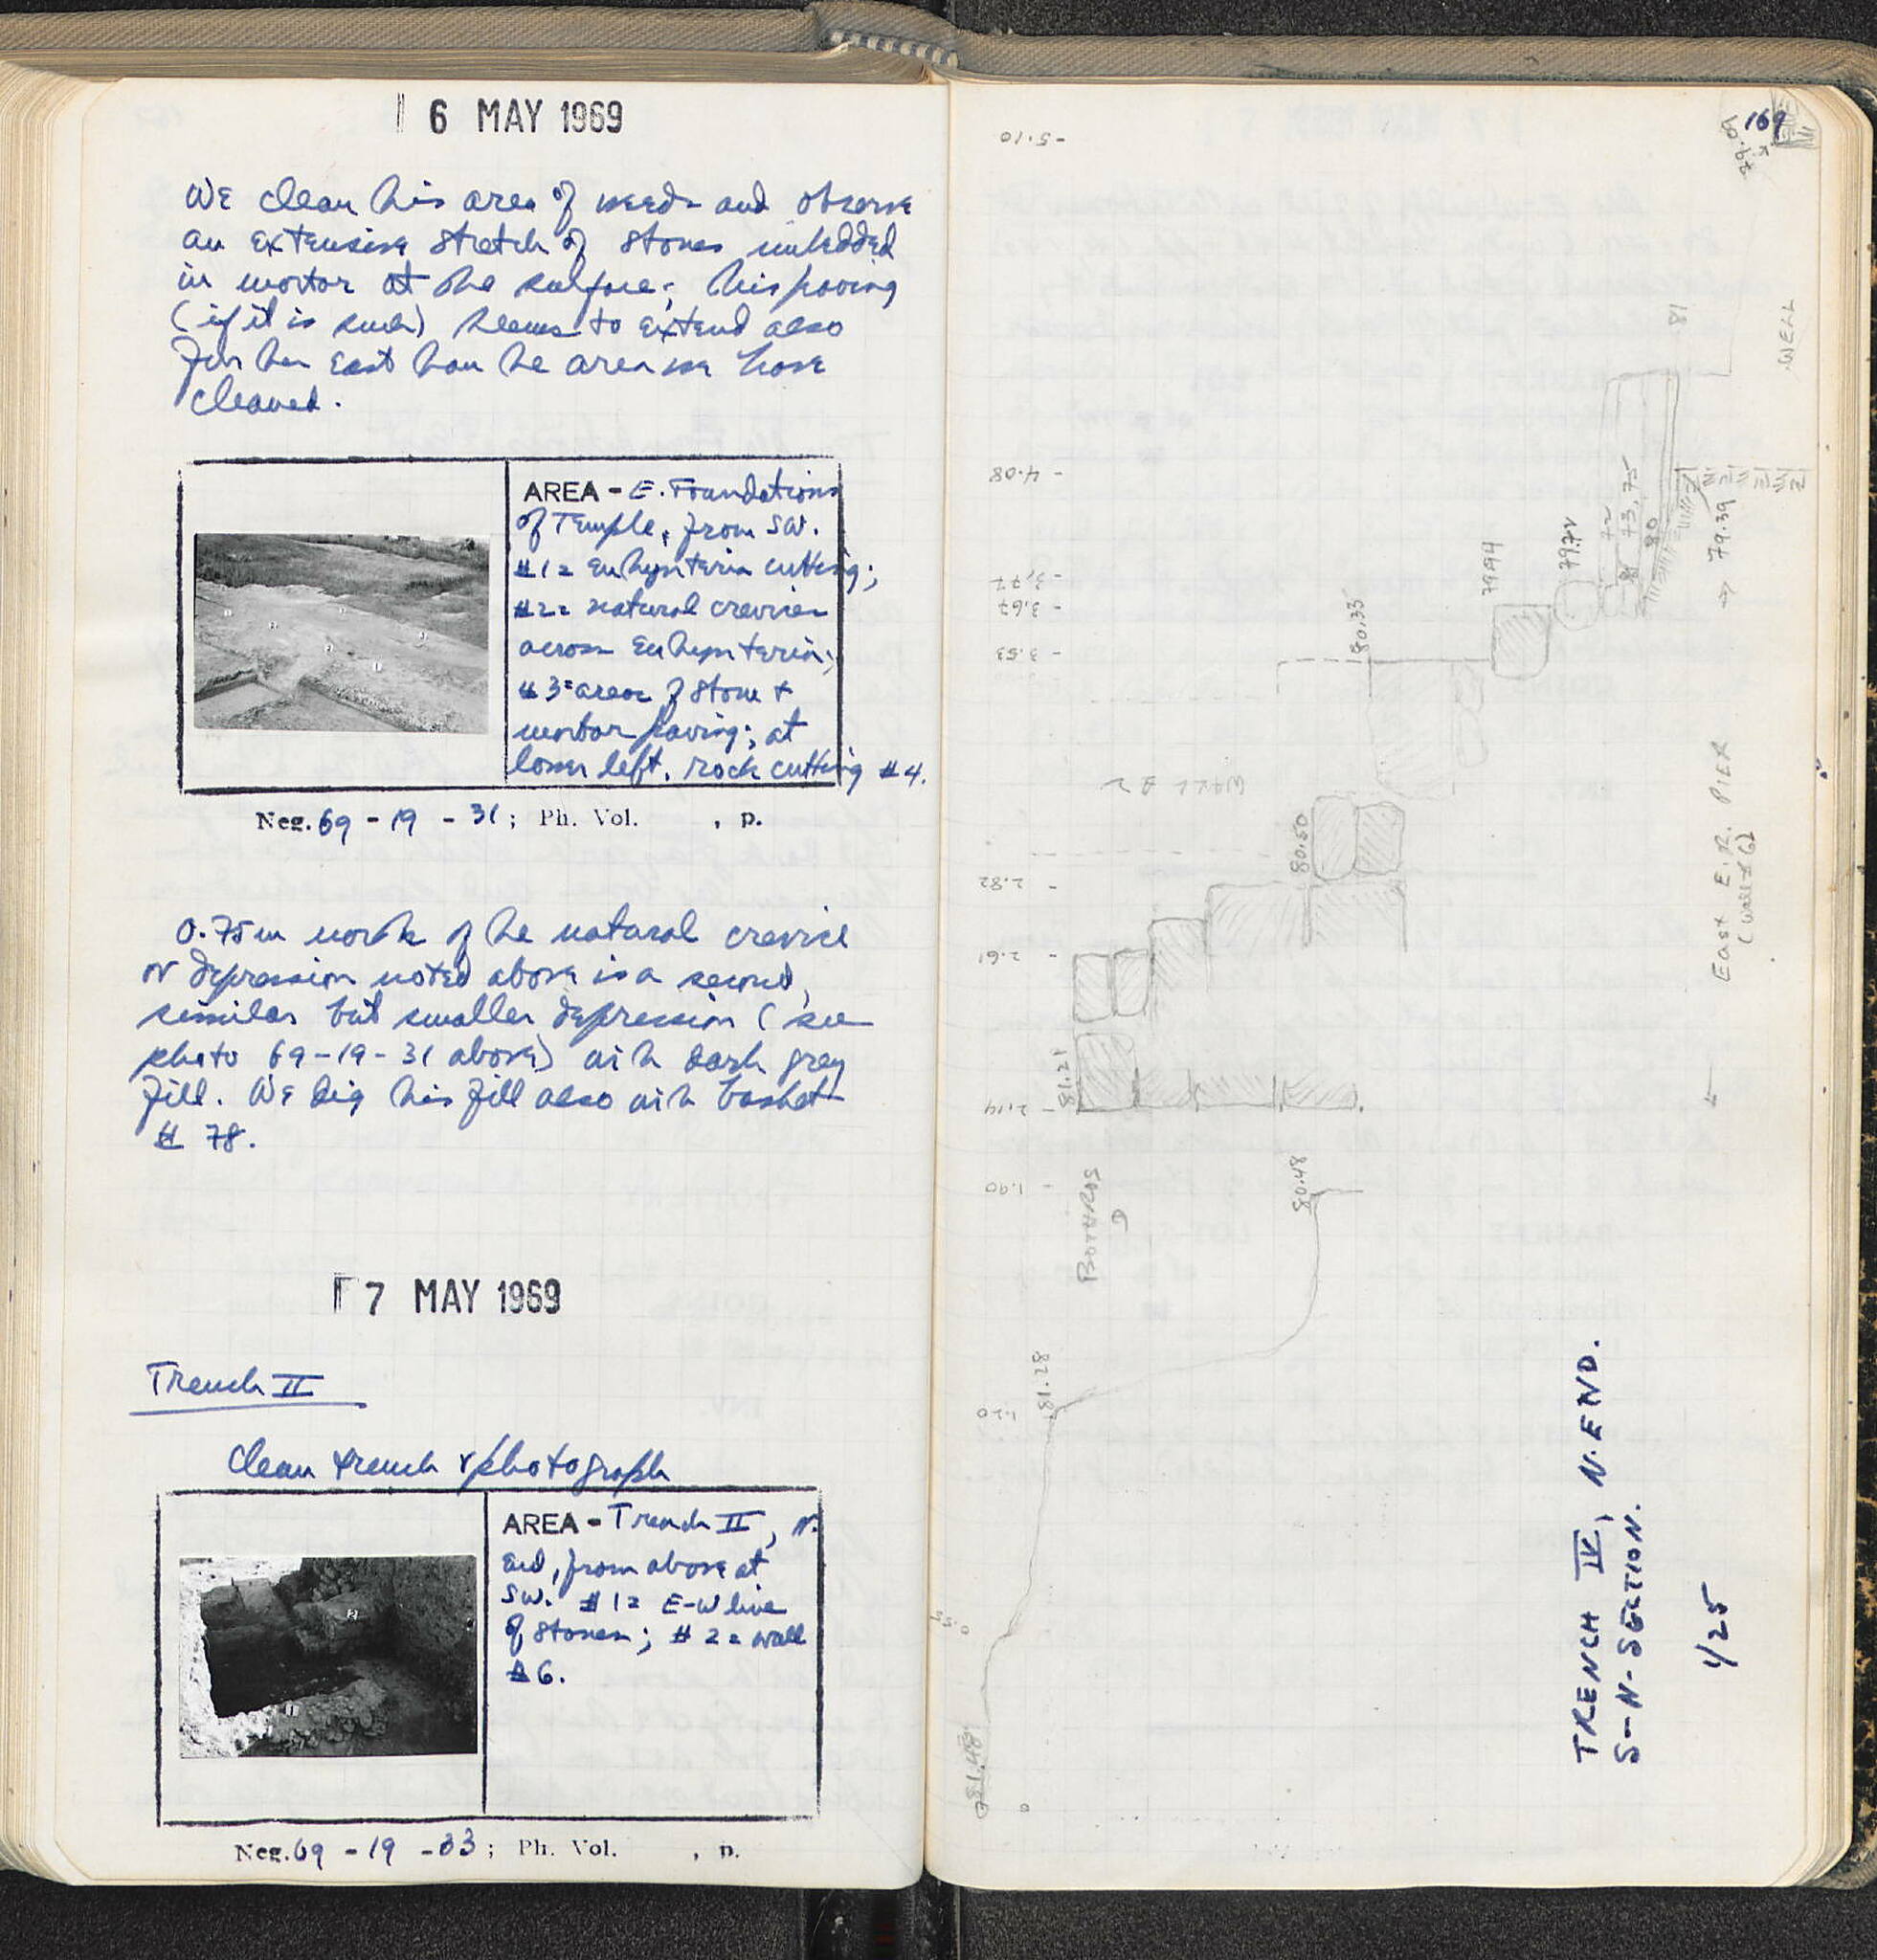 6 MAY 1969
We clean this area of weeds and observe
an extensive stretch of stones imbedded
in mortar at the surface; this paving
(if it is such) seems to extend also
further east than the area we have
cleaned.
AREA - E. Foundations
of Temple, from SW.
#1= Euthynteria cutting;
#2= natural crevice
across Euthynteria;
#3= area of stone +
mortar paving; at
lower left, rock cutting #4.
Neg. 69 - 19 - 31; Ph. Vol. , p.
0.75m north of the natural crevice
or depression noted above is a second,
similar but smaller depression (see
photo 69-19-31 above) with dark grey
fill. We dig this fill also with basket
# 78.
7 MAY 1969
Trench II
Clean trench & photograph
AREA - Trench II, N.
end, from above at
SW. #1= E-W line
of stones; #2= wall
#6.
Neg. 69 - 19 - 33; Ph. Vol. , p.
169
-5.10
-4.08
-3.77
-3.67
-3.53
-2.82
-2.61
-2.14
-1.90
1.20
0
81
WELL
79.39
80
79.72
79.94
80.35
WALL #2
80.50
EAST E.R. PIER
(wall #6)
81.21
BOTHROS
80.48
81.28
81.48
TRENCH IV, N. END.
S-N-SECTION.
1/25